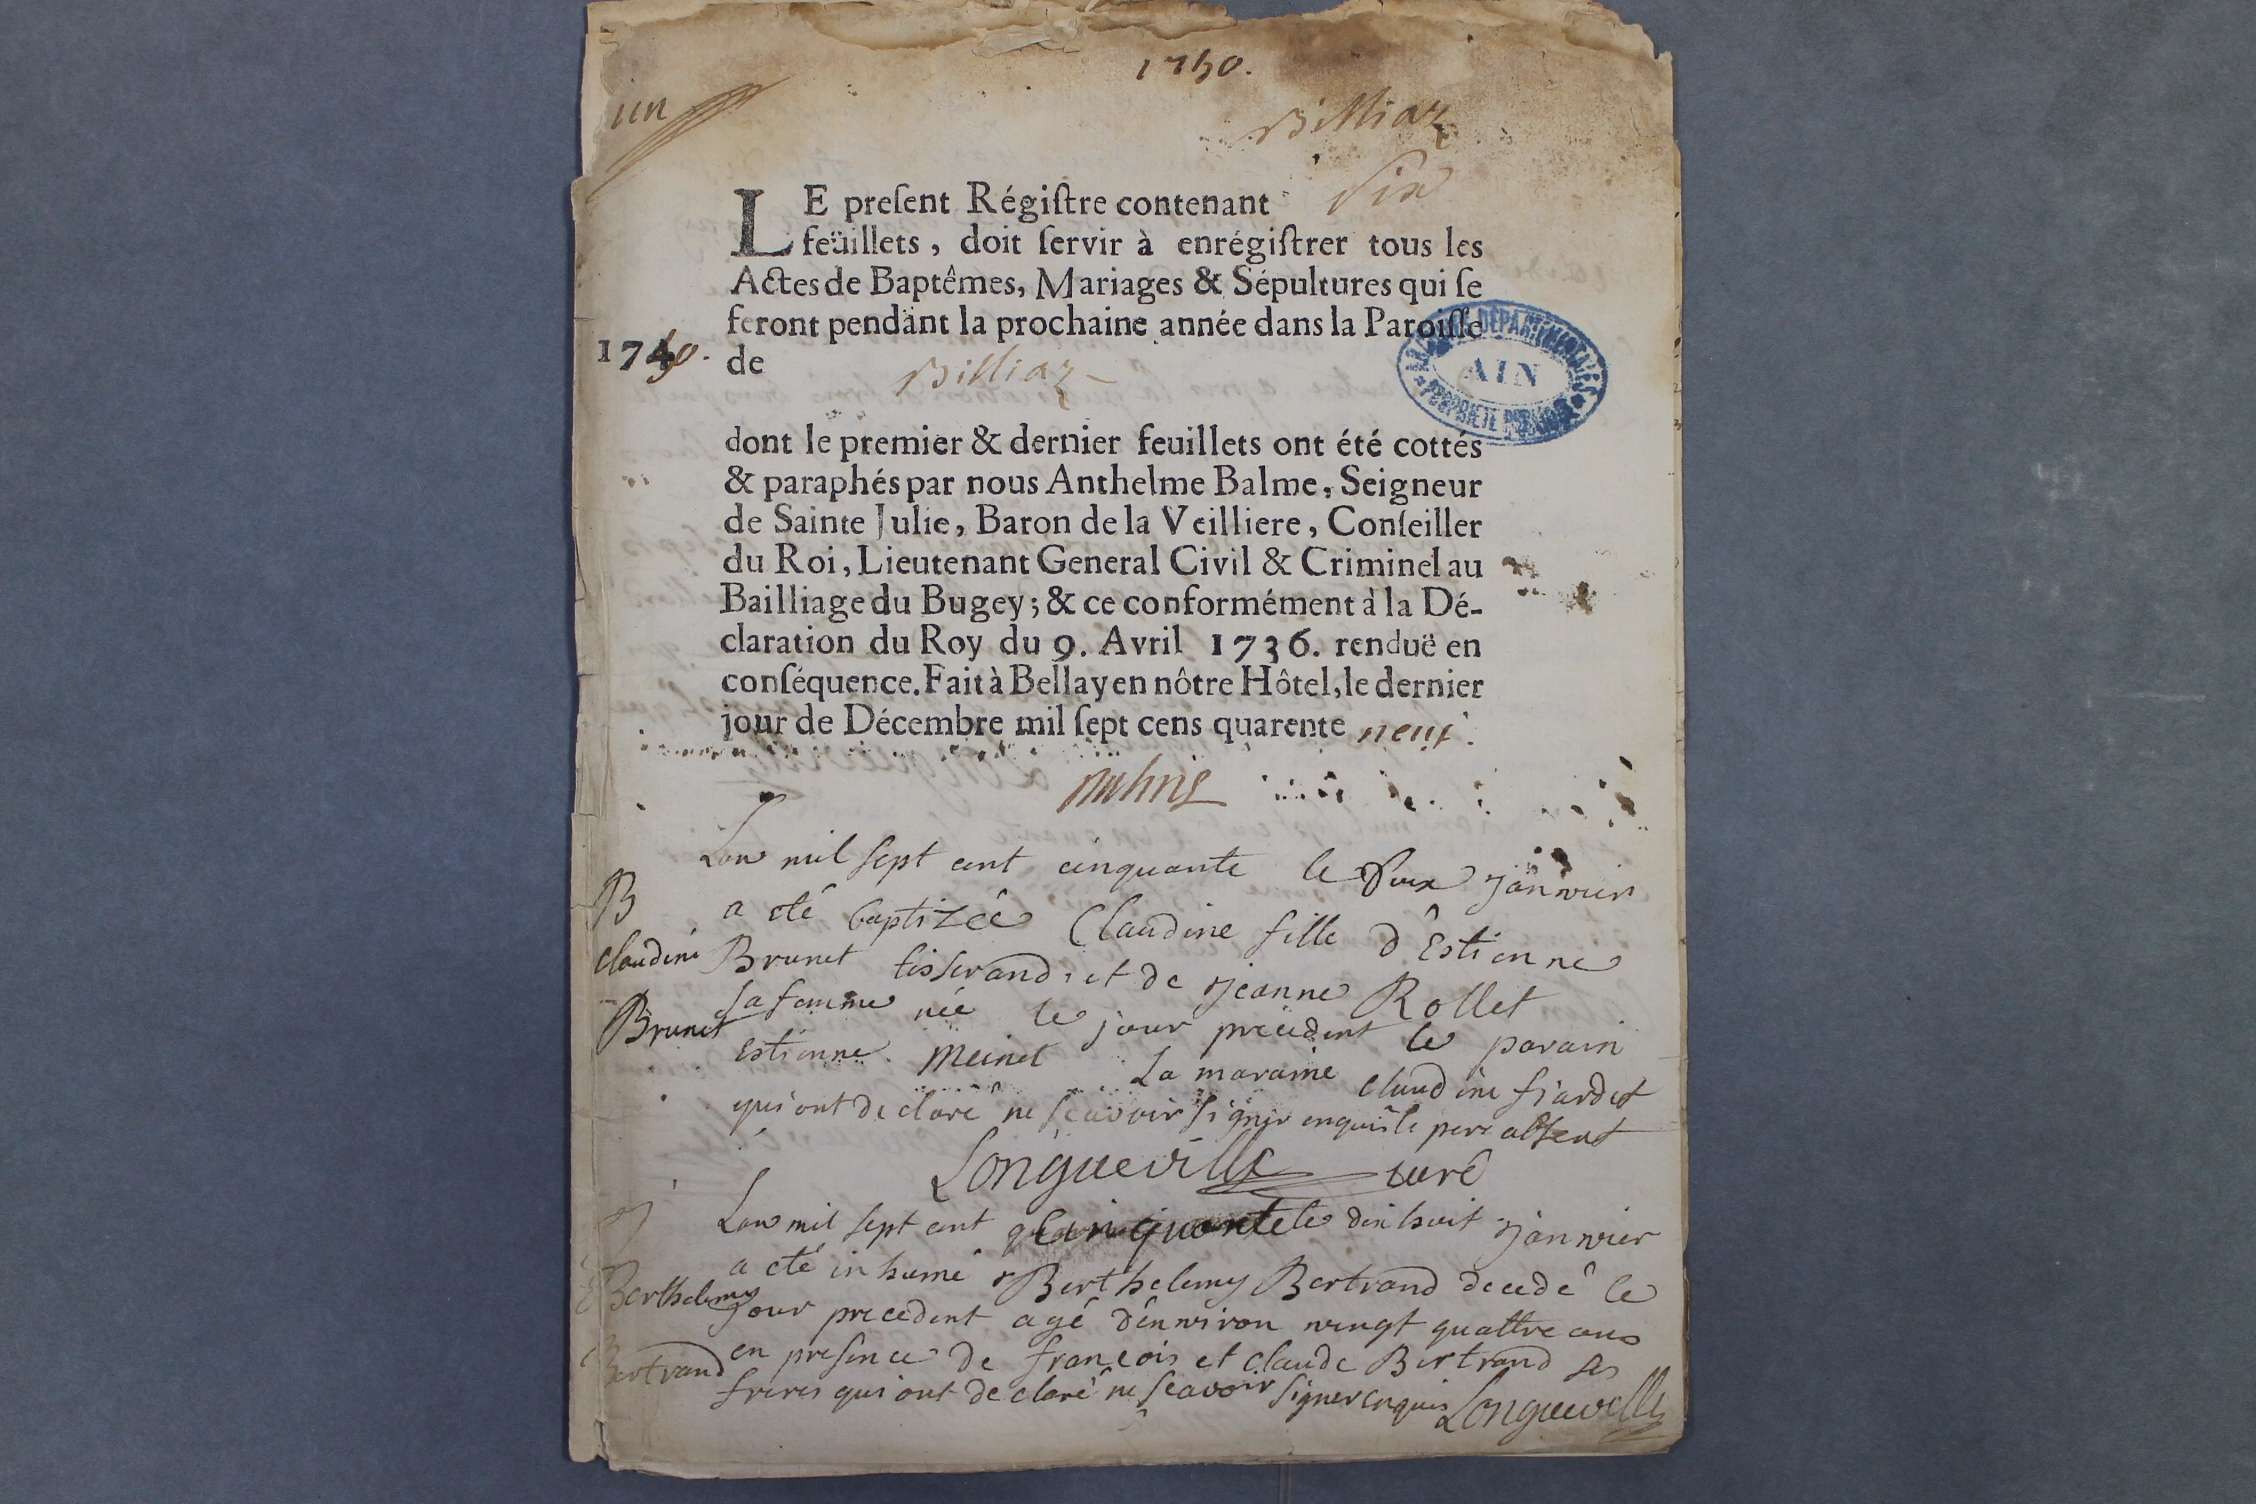 1750.
un
Billiaz
six
LE preſent Régiſtre contenant
feüillets, doit ſervir à enrégiſtrer tous les
Actes de Baptêmes, Mariages & Sépultures qui ſe
feront pendant la prochaine année dans la Paroiſſe
1750.
de Billiaz
ARCHIVES DÉPARTEMENTALES
AIN
PROPRIÉTÉ PUBLIQUE
dont le premier & dernier feuillets ont été cottés
& paraphés par nous Anthelme Balme, Seigneur
de Sainte Julie, Baron de la Veilliere, Conſeiller
du Roi, Lieutenant General Civil & Criminel au
Bailliage du Bugey; & ce conformément à la Dé-
claration du Roy du 9. Avril 1736. renduë en
conſéquence. Fait à Bellay en nôtre Hôtel, le dernier
jour de Décembre mil ſept cens quarente neuf.
Lan mil sept cent cinquante le deux janvier
B
a eté baptizée Claudine fille d'Estienne
Claudine
Brunet tisserand, et de jeanne Rollet
sa femme née le jour precedent le parain
Brunet
estienne Meinet La maraine claudine fiardet
qui ont declaré ne scavoir signer enquis le pere absent
Longueville curé
Lan mil sept cent cinquante le dix huit janvier
a eté inhumé Berthelemy Bertrand decedé le
Berthelemy
jour precedent agé d'environ vingt quattre ans
en presence de francois et claude Bertrand ses
Bertrand
freres qui ont declaré ne scavoir signer enquis Longueville